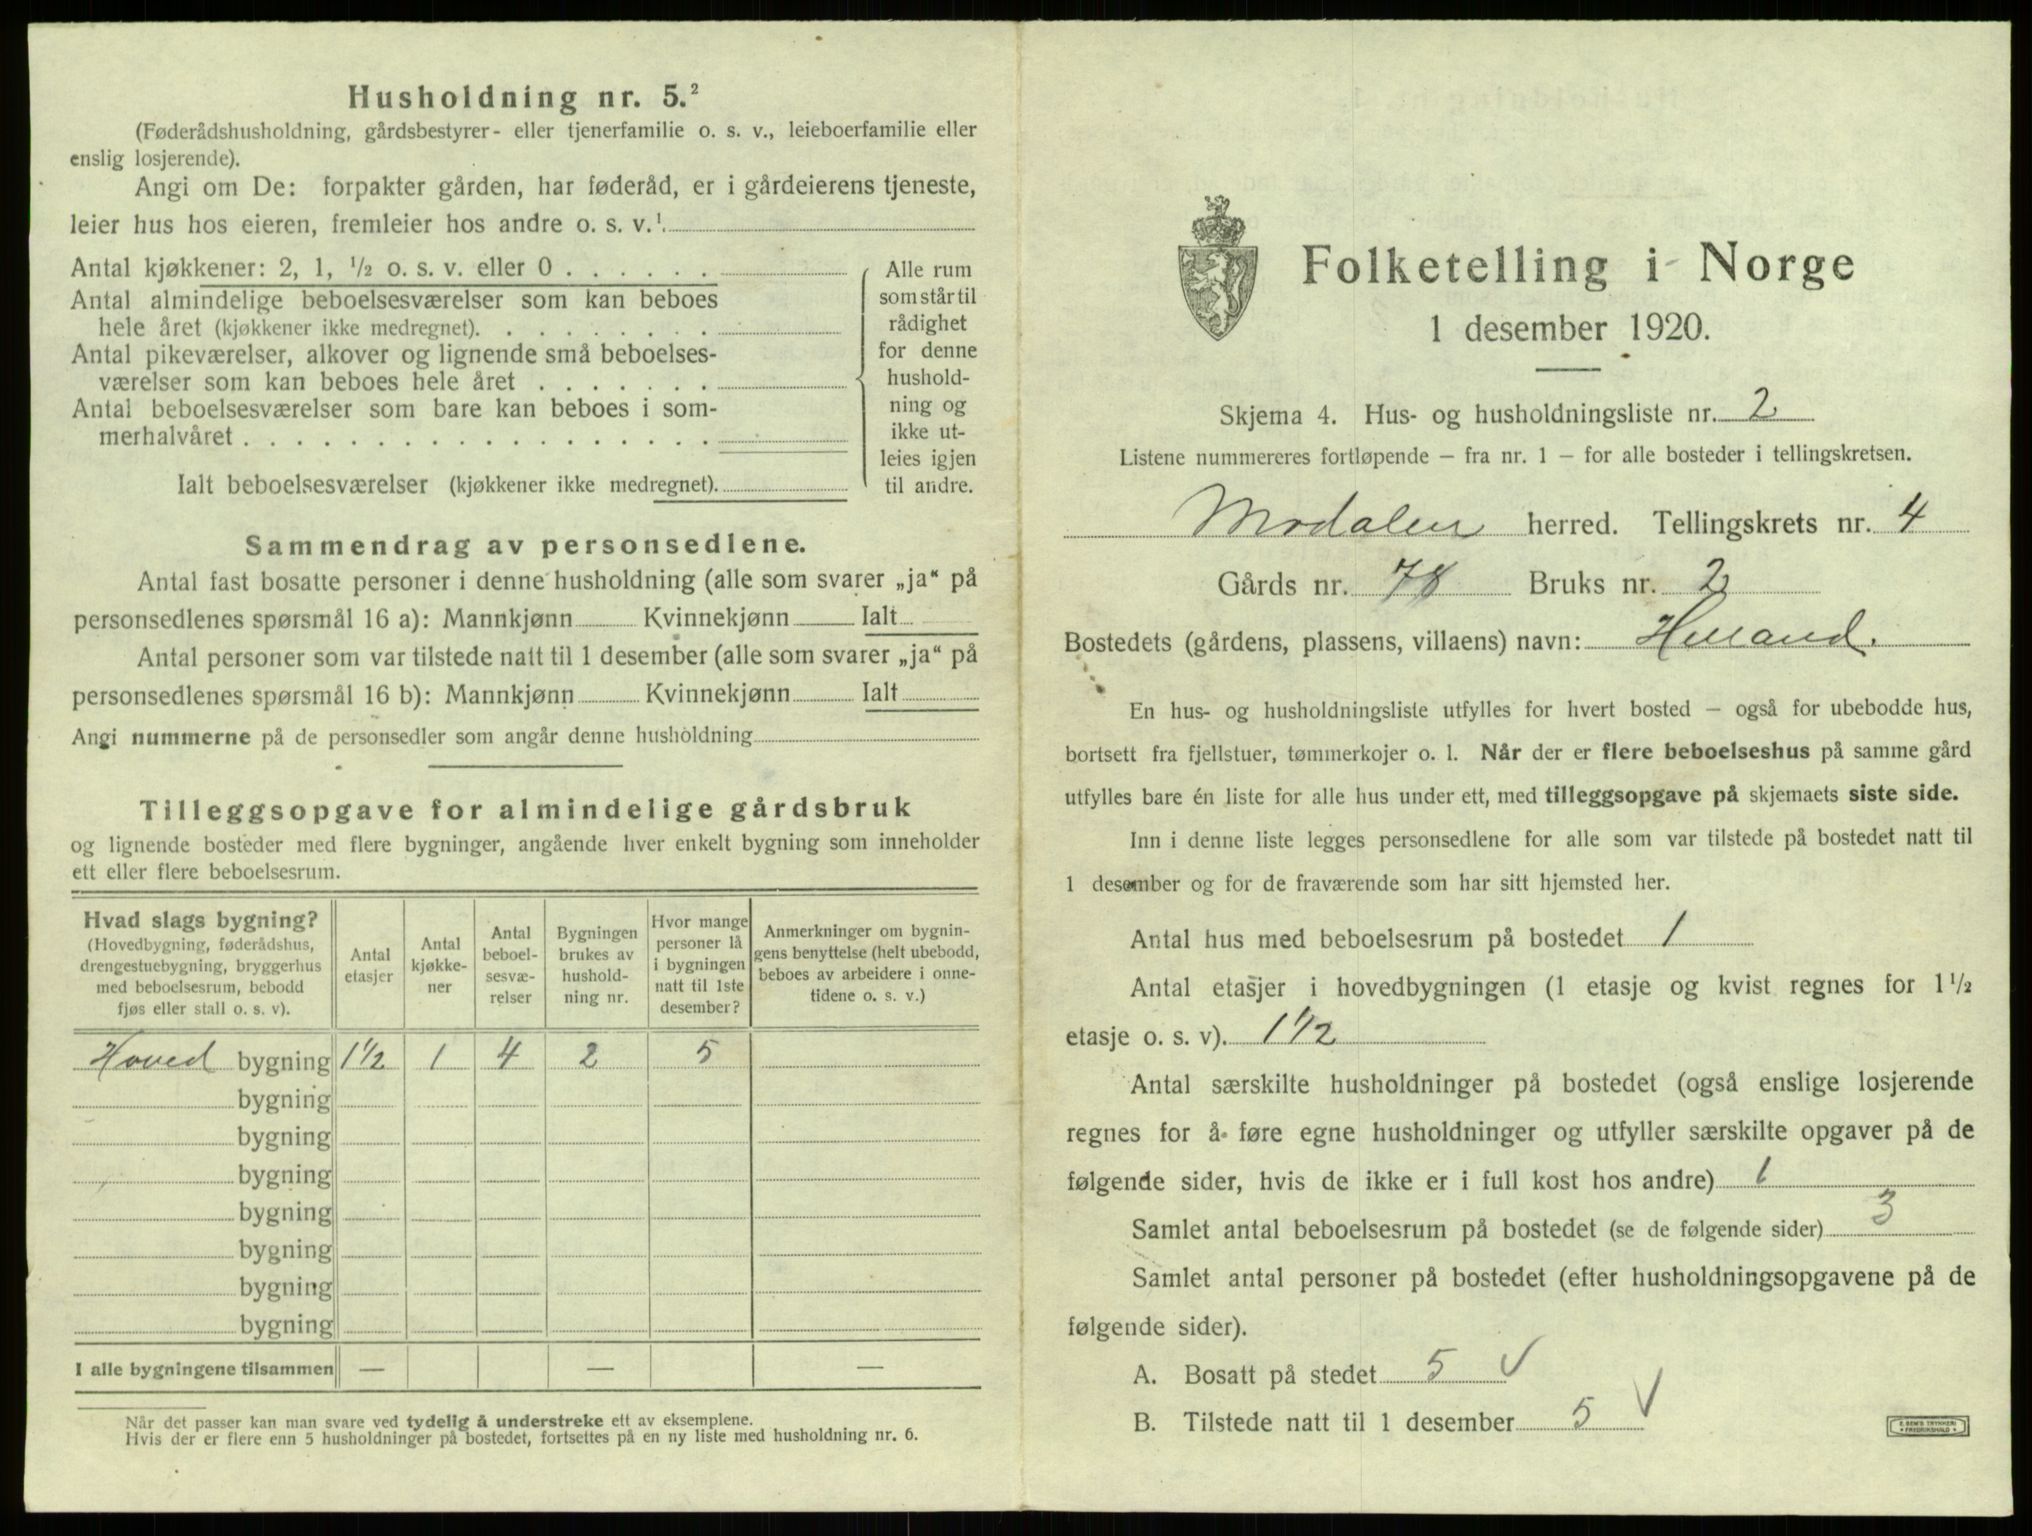 Husholdning nr. 5.²
(Føderådshusholdning, gårdsbestyrer- eller tjenerfamilie o. s. v., leieboerfamilie eller
enslig losjerende).
Angi om De: forpakter gården, har føderåd, er i gårdeierens tjeneste,
leier hus hos eieren, fremleier hos andre o. s. v.¹
Antal kjøkkener: 2, 1, ½ o. s. v. eller 0
Antal almindelige beboelsesværelser som kan beboes
hele året (kjøkkener ikke medregnet).
Antal pikeværelser, alkover og lignende små beboelses-
værelser som kan beboes hele året
Antal beboelsesværelser som bare kan beboes i som-
merhalvåret
Ialt beboelsesværelser (kjøkkener ikke medregnet).
Alle rum
som står til
rådighet
for denne
hushold-
ning og
ikke ut-
leies igjen
til andre.
Sammendrag av personsedlene.
Antal fast bosatte personer i denne husholdning (alle som svarer „ja“ på
personsedlenes spørsmål 16 a): Mannkjønn Kvinnekjønn Ialt
Antal personer som var tilstede natt til 1 desember (alle som svarer „ja“ på
personsedlenes spørsmål 16 b): Mannkjønn Kvinnekjønn Ialt
Angi nummerne på de personsedler som angår denne husholdning
Tilleggsopgave for almindelige gårdsbruk
og lignende bosteder med flere bygninger, angående hver enkelt bygning som inneholder
ett eller flere beboelsesrum.
Hvad slags bygning?
(Hovedbygning, føderådshus,
drengestuebygning, bryggerhus
med beboelsesrum, bebodd
fjøs eller stall o. s. v).
Antal
etasjer
Antal
kjøkke-
ner
Antal
beboel-
sesvæ-
relser
Bygningen
brukes av
hushold-
ning nr.
Hvor mange
personer lå
i bygningen
natt til 1ste
desember?
Anmerkninger om bygnin-
gens benyttelse (helt ubebodd,
beboes av arbeidere i onne-
tidene o. s. v.)
Hoved bygning 1½ 1 4 2 5
bygning
bygning
bygning
bygning
bygning
bygning
bygning
I alle bygningene tilsammen — — —
Når det passer kan man svare ved tydelig å understreke ett av eksemplene.
Hvis der er flere enn 5 husholdninger på bostedet, fortsettes på en ny liste med husholdning nr. 6.
Folketelling i Norge
1 desember 1920.
Skjema 4. Hus- og husholdningsliste nr. 2
Listene nummereres fortløpende — fra nr. 1 — for alle bosteder i tellingskretsen.
Modalen herred. Tellingskrets nr. 4
Gårds nr. 78 Bruks nr. 2
Bostedets (gårdens, plassens, villaens) navn: Helland.
En hus- og husholdningsliste utfylles for hvert bosted — også for ubebodde hus,
bortsett fra fjellstuer, tømmerkojer o. l. Når der er flere beboelseshus på samme gård
utfylles bare én liste for alle hus under ett, med tilleggsopgave på skjemaets siste side.
Inn i denne liste legges personsedlene for alle som var tilstede på bostedet natt til
1 desember og for de fraværende som har sitt hjemsted her.
Antal hus med beboelsesrum på bostedet 1
Antal etasjer i hovedbygningen (1 etasje og kvist regnes for 1½
etasje o. s. v). 1½
Antal særskilte husholdninger på bostedet (også enslige losjerende
regnes for å føre egne husholdninger og utfyller særskilte opgaver på de
følgende sider, hvis de ikke er i full kost hos andre) 1
Samlet antal beboelsesrum på bostedet (se de følgende sider) 3
Samlet antal personer på bostedet (efter husholdningsopgavene på de
følgende sider).
A. Bosatt på stedet 5 √
B. Tilstede natt til 1 desember 5 √